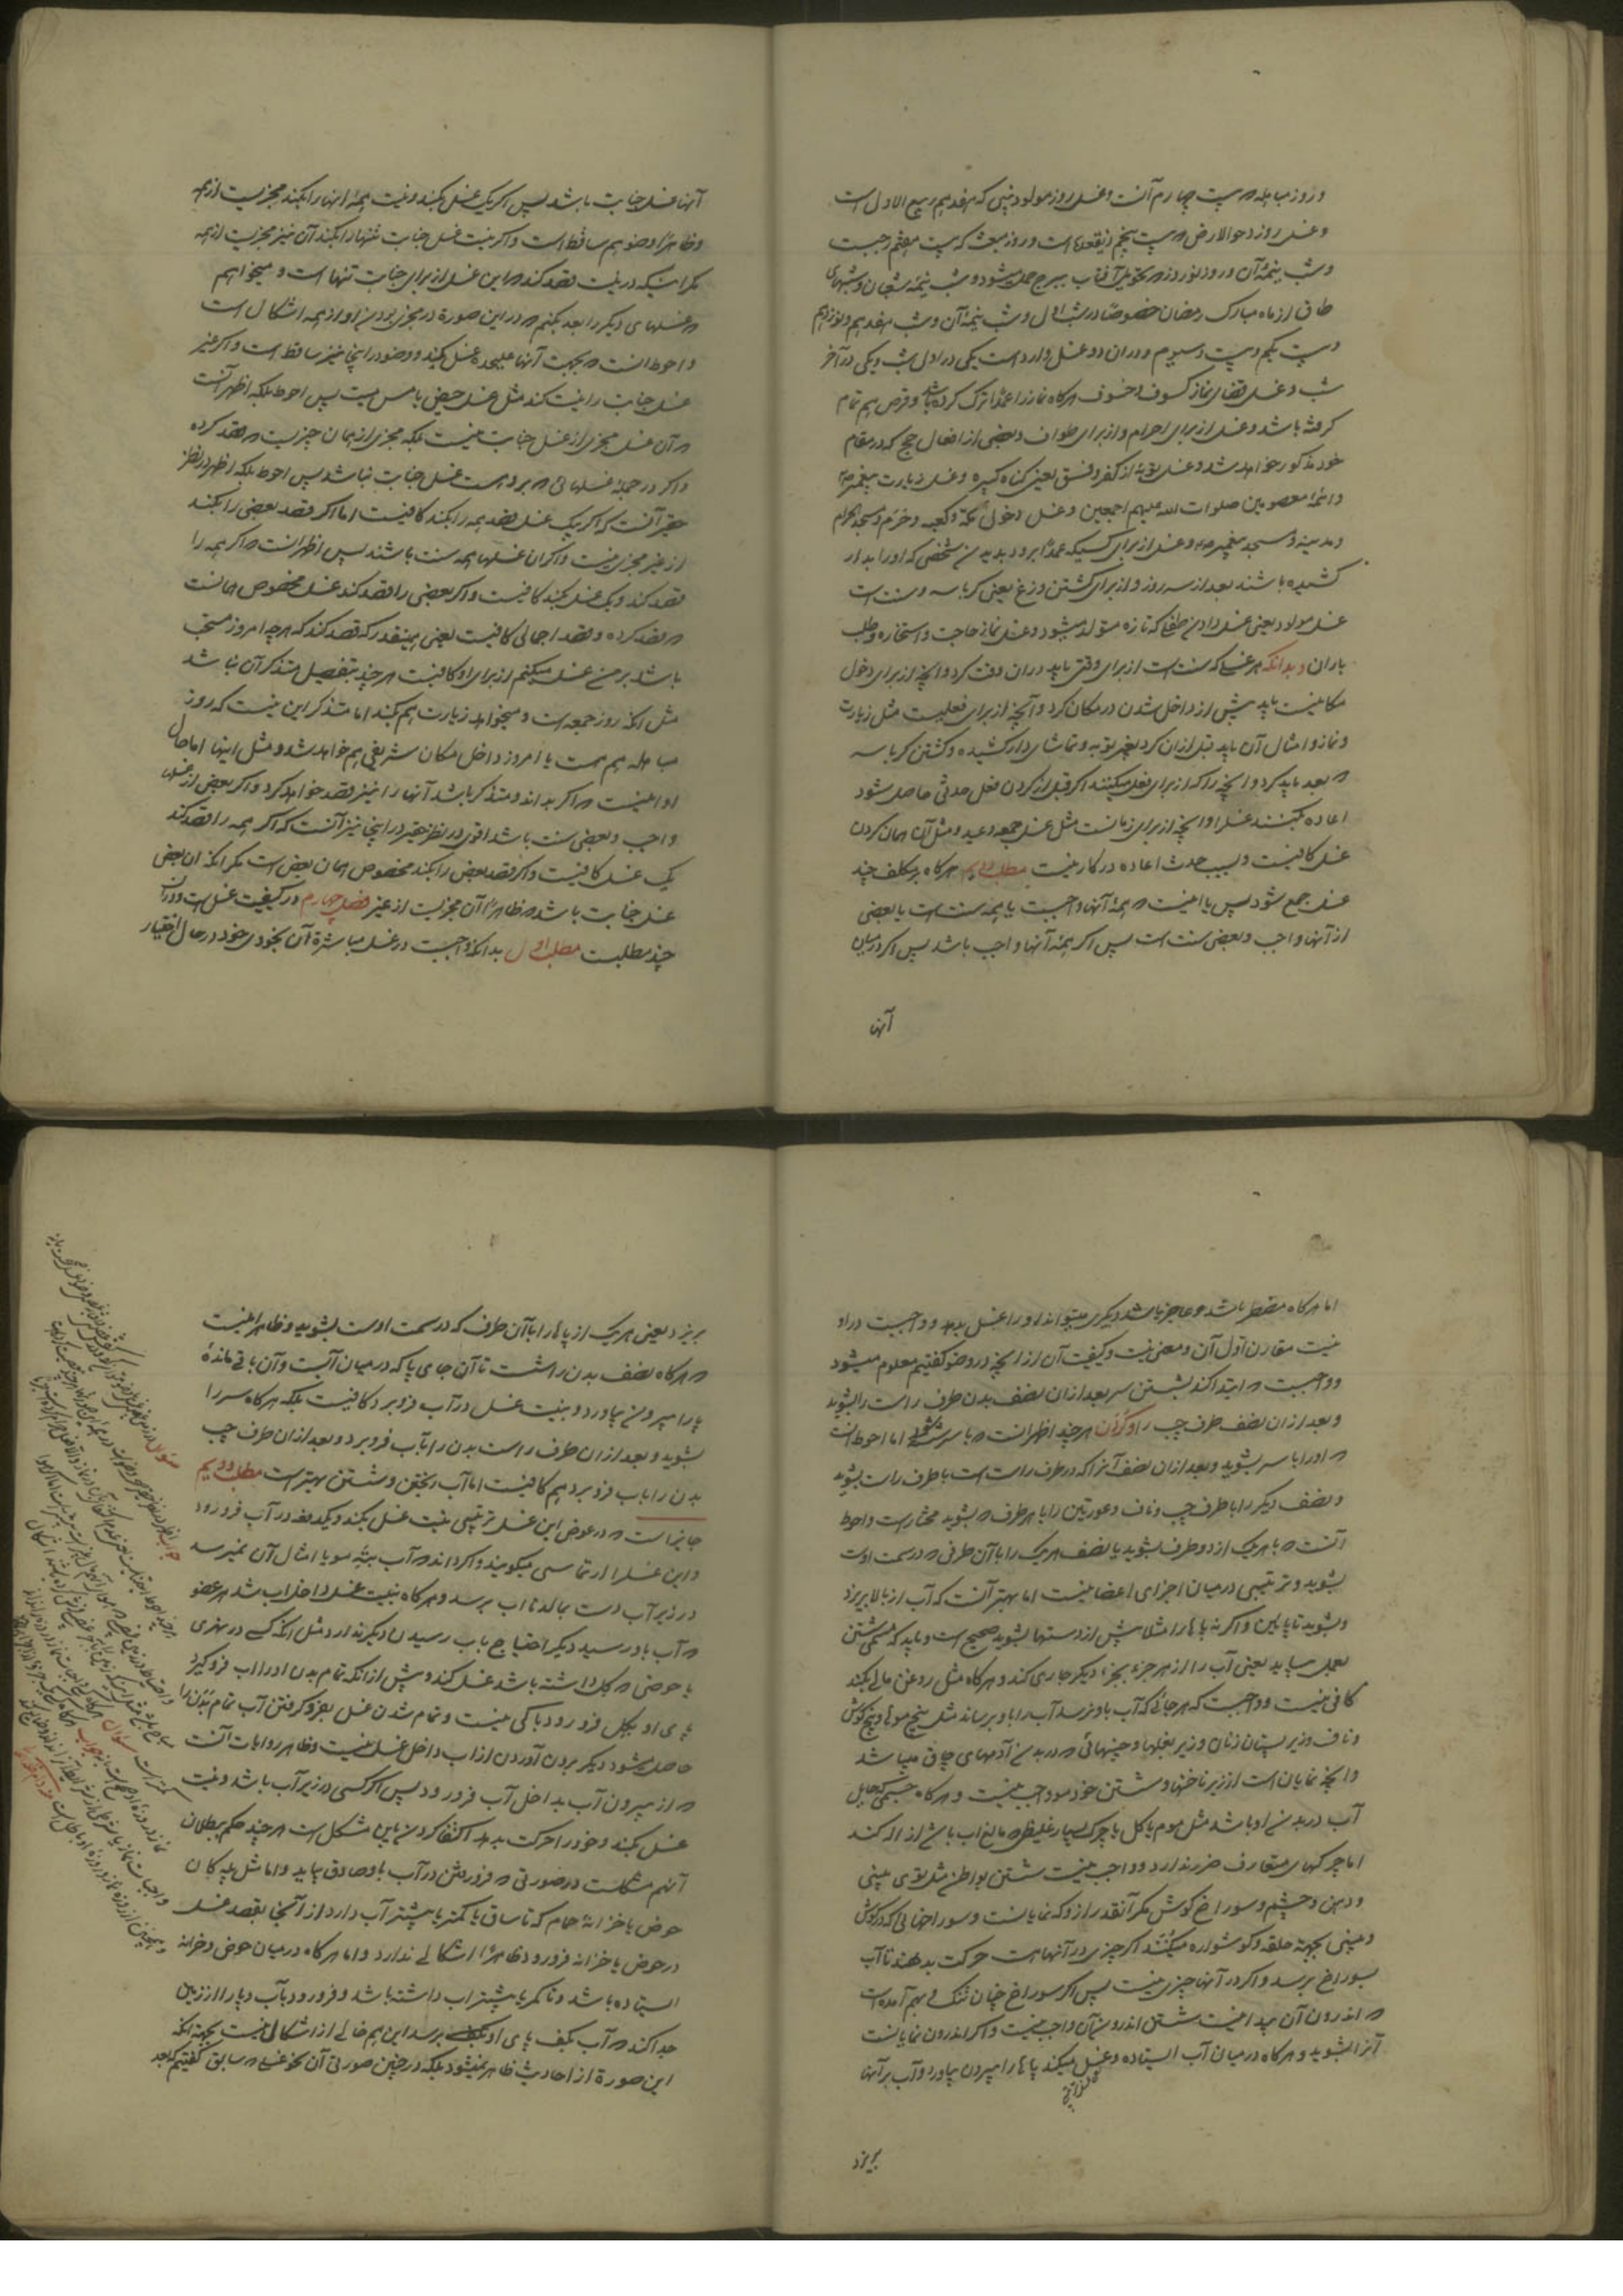 و روز مباهله که بیست چهارم آنست و غسل روز مولود نبی که هفدهم ربیع الاول است
و غسل روز دحو الارض که بیست پنجم ذیقعده است و روز مبعث که بیست هفتم رجبست
و شب نیمهٔ آن و روز نوروز که تحویل آفتاب ببرج حمل میشود و شب نیمه شعبان و شبهای
طاق از ماه مبارک رمضان خصوصا در شب اول و شب نیمه آن و شب هفدهم و نوزدهم
و بیست یکم و بیست و سیوم و در آن دو غسل وارد است یکی در اول شب و یکی در آخر
شب و غسل قضای نماز کسوف و خسوف هرگاه نماز را عمدا ترک کرده باشد و قرص هم تمام
گرفته باشد و غسل از برای احرام و از برای طواف و بعضی از افعال حج که در مقام
خود مذکور خواهد شد و غسل توبه از کفر و فسق یعنی گناه کبیره و غسل زیارت پیغمبر
و ائمه معصومین صلوات الله علیهم اجمعین و غسل دخول مکه و کعبه و حرم و مسجد الحرام
و مدینه و مسجد پیغمبر و غسل از برای کسیکه عمدا برود بدیدن شخصی که او را بدار
کشیده باشند بعد از سه روز و از برای کشتن وزغ یعنی کرباسه و سنت است
غسل مولود یعنی غسل دادن طفلی که تازه متولد میشود و غسل نماز حاجت و استخاره و طلب
باران و بدانکه هر غسلی که سنت است از برای وقتی باید در آن وقت کرد و آنچه از برای دخول
مکانیست باید پیش از داخل شدن در مکان کرد و آنچه از برای فعلیست مثل زیارت
و نماز و امثال آن باید قبل از آن کرد بغیر توبه و تماشای دار کشیده و کشتن کرباسه
که بعد باید کرد و آنچه را که از برای فعل میکنند اگر قبل از کردن فعل حدثی حاصل شود
اعاده میکنند غسل را و آنچه از برای زمانست مثل غسل جمعه و عید و مثل آن همان کردن
غسل کافیست و بسبب حدث اعاده در کار نیست مطلب دویم هرگاه بر مکلف چند
غسل جمع شود پس یا اینست که همهٔ آنها واجبست یا همه سنت است یا بعضی
از آنها واجب و بعضی سنت است پس اگر همهٔ آنها واجب باشد پس اگر در میان
آنها
آنها غسل جنابت باشد پس اگر یک غسل بکند و نیت همهٔ اینها را بکند مجزیست از همه
و ظاهرا وضو هم ساقط است و اگر نیت غسل جنابت تنها را بکند آن نیز مجزیست از همه
مگر اینکه در نیت قصد کند که این غسل از برای جنابت تنها است و میخواهم
که غسلهای دیگر را بعد بکنم که در این صورة در مجزی بودن او از همه اشکال است
و احوط انست که بجهت آنها علیحده غسل بکند و وضو در اینجا نیز ساقط است و اگر غیر
غسل جنابت را نیت کند مثل غسل حیض یا مس میت پس احوط بلکه اظهر آنست
که آن غسل مجزی از غسل جنابت نیست بلکه مجزی از همان چیزیست که قصد کرده
و اگر در جمله غسلهائی که بر اوست غسل جنابت نباشد پس احوط بلکه اظهر در نظر
حقیر آنست که اگر بیک غسل قصد همه را بکند کافیست اما اگر قصد بعضی را بکند
از غیر مجزی نیست و اگر آن غسلها همه سنت باشند پس اظهر انست که اگر همه را
قصد کند و یک غسل بکند کافیست و اگر بعضی را قصد کند غسل مخصوص همانست
که قصد کرده و قصد اجمالی کافیست یعنی همینقدر که قصد کند که هر چه امروز مستحب
باشد بر من غسل میکنم از برای او کافیست هر چند بتفصیل متذکر آن نباشد
مثل انکه روز جمعه است و میخواهد زیارت هم بکند اما متذکر این نیست که روز
مباهله هم هست یا امروز داخل مکان شریفی هم خواهد شد و مثل اینها اما حال
او اینست که اگر بداند و متذکر باشد آنها را نیز قصد خواهد کرد و اگر بعضی از غسلها
واجب و بعضی سنت باشد اقوی در نظر حقیر در اینجا نیز آنست که اگر همه را قصد کند
یک غسل کافیست و اگر قصد بعض را بکند مخصوص همان بعض است مگر انکه ان بعض
غسل جنابت باشد که ظاهرا آن مجزیست از غیر فصل چهارم در کیفیت غسل است و در آن
چند مطلبست مطلب اول بدانکه واجبست در غسل مباشرة آن بخودی خود در حال اختیار
اما هرگاه مضطر باشد و عاجز باشد دیگری میتواند او را غسل بدهد و واجبست در او
نیت مقارن اول آن و معنی نیت و کیفیت آن از آنچه در وضو گفتیم معلوم میشود
و واجبست که ابتدا کند بشستن سر بعد از آن نصف بدن طرف راست را بشوید
و بعد از آن نصف طرف چپ را و گردن هر چند اظهر انست که با سر شسته اما احوط انست
که او را با سر بشوید و بعد از آن نصف آنرا که در طرف راست است با طرف راست بشوید
و نصف دیگر را با طرف چپ و ناف و عورتین را با هر طرف که بشوید مختار است و احوط
آنست که با هر یک از دو طرف بشوید یا نصف هر یک را با آن طرفی که در سمت اوست
بشوید و ترتیبی در میان اجزای اعضا نیست اما بهتر آنست که آب از بالا بریزد
و بشوید تا پایین و اگر نه پاها را مثلا پیش از دستها بشوید صحیح است و باید که مسمی شستن
بعمل بیاید یعنی آب را از هر جزء بجزء دیگر جاری کند و هرگاه مثل روغن مالی بکند
کافی نیست و واجبست که هر جائی که آب باو نرسد آب را باو برساند مثل بیخ موها و بیخ گوش
و ناف و زیر پستان زنان و زیر بغلها و چینهائی که در بدن آدمهای چاق میباشد
و آنچه نمایان است از زیر ناخنها و شستن خود مو واجب نیست و هرگاه جسمی حایل
آب در بدن او باشد مثل موم یا گل یا چرک بسیار غلیظی که مانع اب باشد ازاله کند
اما چرکهای متعارف ضرر ندارد و واجب نیست شستن بواطن مثل توی بینی
و دهن و چشم و سوراخ گوش مگر آنقدر از او که نمایانست و سوراخهائی که در گوش
و بینی بجهة حلقه و گوشواره میکنند اگر چیزی در آنهاست حرکت بدهند تا آب
بسوراخ برسد و اگر در آنها چیزی نیست پس اگر سوراخ چنان تنگ بهم آمده است
که اندرون آن پیدا نیست شستن اندرون آن واجب نیست و اگر اندرون نمایانست
آنرا بشوید و هرگاه در میان آب ایستاده و غسل میکند پاها را بیرون بیاورد و آب بر آنها
بریزد
بریزد یعنی هر یک از پاها را با آن طرف که در سمت اوست بشوید و ظاهر اینست
که هرگاه نصف بدن را شست تا آن جای پا که در میان آبست و آن باقی مانده
پا را بیرون نیاورد و بنیت غسل در آب فرو برد کافیست بلکه هرگاه سر را
بشوید و بعد از آن طرف راست بدن را بآب فرو برد و بعد از ان طرف چپ
بدن را باب فرو برد هم کافیست اما آب ریختن و شستن بهتر است مطلب دویم
جایز است که در عوض این غسل ترتیبی نیت غسل بکند و یکدفعه در آب فرو رود
و این غسل را ارتماسی میگویند و اگر داند که آب به ته مو یا امثال آن نمیرسد
در زیر آب دست بمالد تا اب برسد و هرگاه بنیت غسل داخل اب شد هر عضو
که آب باو رسید دیگر احتیاج باب رسیدن دیگر ندارد مثل انکه کسی در نهری
یا حوضی که گل داشته باشد غسل کند و پیش از انکه تمام بدن او را اب فرو گیرد
پای او بگل فرو رود باکی نیست و تمام شدن غسل بفرو گرفتن آب تمام بدن را
حاصل میشود دیگر بیرون آوردن از اب داخل غسل نیست و ظاهر روایات آنست
که از بیرون آب بداخل آب فرو رود پس اگر کسی در زیر آب باشد و نیت
غسل بکند و خود را حرکت بدهد اکتفا کردن باین مشکل است هر چند حکم ببطلان
آنهم مشکلست در صورتی که فرو رفتن در آب باو صادق بیاید و اما مثل پله کان
حوض یا خزانهٔ حمام که تا ساق یا کمتر یا بیشتر آب دارد از آنجا بقصد غسل
در حوض یا خزانه فرو رود ظاهرا اشکالی ندارد و اما هرگاه در میان حوض و خزانه
ایستاده باشد و تا کمر یا بیشتر اب داشته باشد و فرو رود بآب و پا را از زمین
جدا کند که آب بکف پای او برسد این هم خالی از اشکالی نیست بجهة انکه
این صورة از احادیث ظاهر نمیشود بلکه در چنین صورتی آن نحو غسلی که سابق گفتیم که بعد
سؤال
جواب
سؤال
جواب